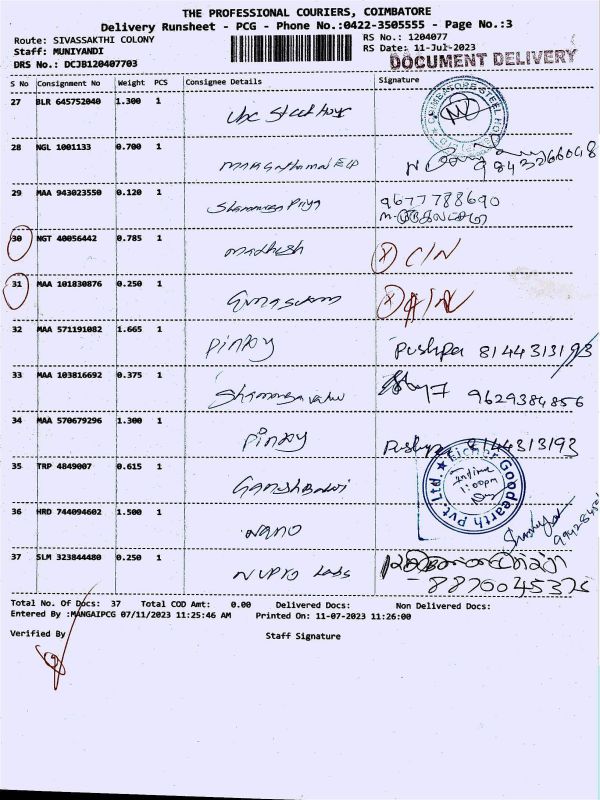 THE PROFESSIONAL COURIERS, COIMBATORE
Delivery Runsheet - PCG - Phone No.:0422-3505555 - Page No.:3
Route: SIVASSAKTHI COLONY RS No.: 1204077
Staff: MUNIYANDI RS Date: 11-Jul-2023
DRS No.: DCJB120407703 DOCUMENT DELIVERY
S No Consignment No Weight PCS Consignee Details Signature
27 BLR 645752040 1.300 1
28 NGL 1001133 0.700 1 9843266048
29 MAA 943023550 0.120 1 Shanmuga Priya 9677788690
30 NGT 40056442 0.785 1 Madhesh X C/N
31 MAA 101830876 0.250 1 X
32 MAA 571191082 1.665 1 Pinky Pushpa 8144313193
33 MAA 103816692 0.375 1 9629384856
34 MAA 570679296 1.300 1 Pinky Pushpa 8144313193
35 TRP 4849007 0.615 1 Eicher Goodearth Pvt. Ltd. 1:00pm
36 HRD 744094602 1.500 1 Nano
37 SLM 323844480 0.250 1 Nupro Labs 8870045375
Total No. Of Docs: 37 Total COD Amt: 0.00 Delivered Docs: Non Delivered Docs:
Entered By :MANGAIPCG 07/11/2023 11:25:46 AM Printed On: 11-07-2023 11:26:00
Verified By Staff Signature